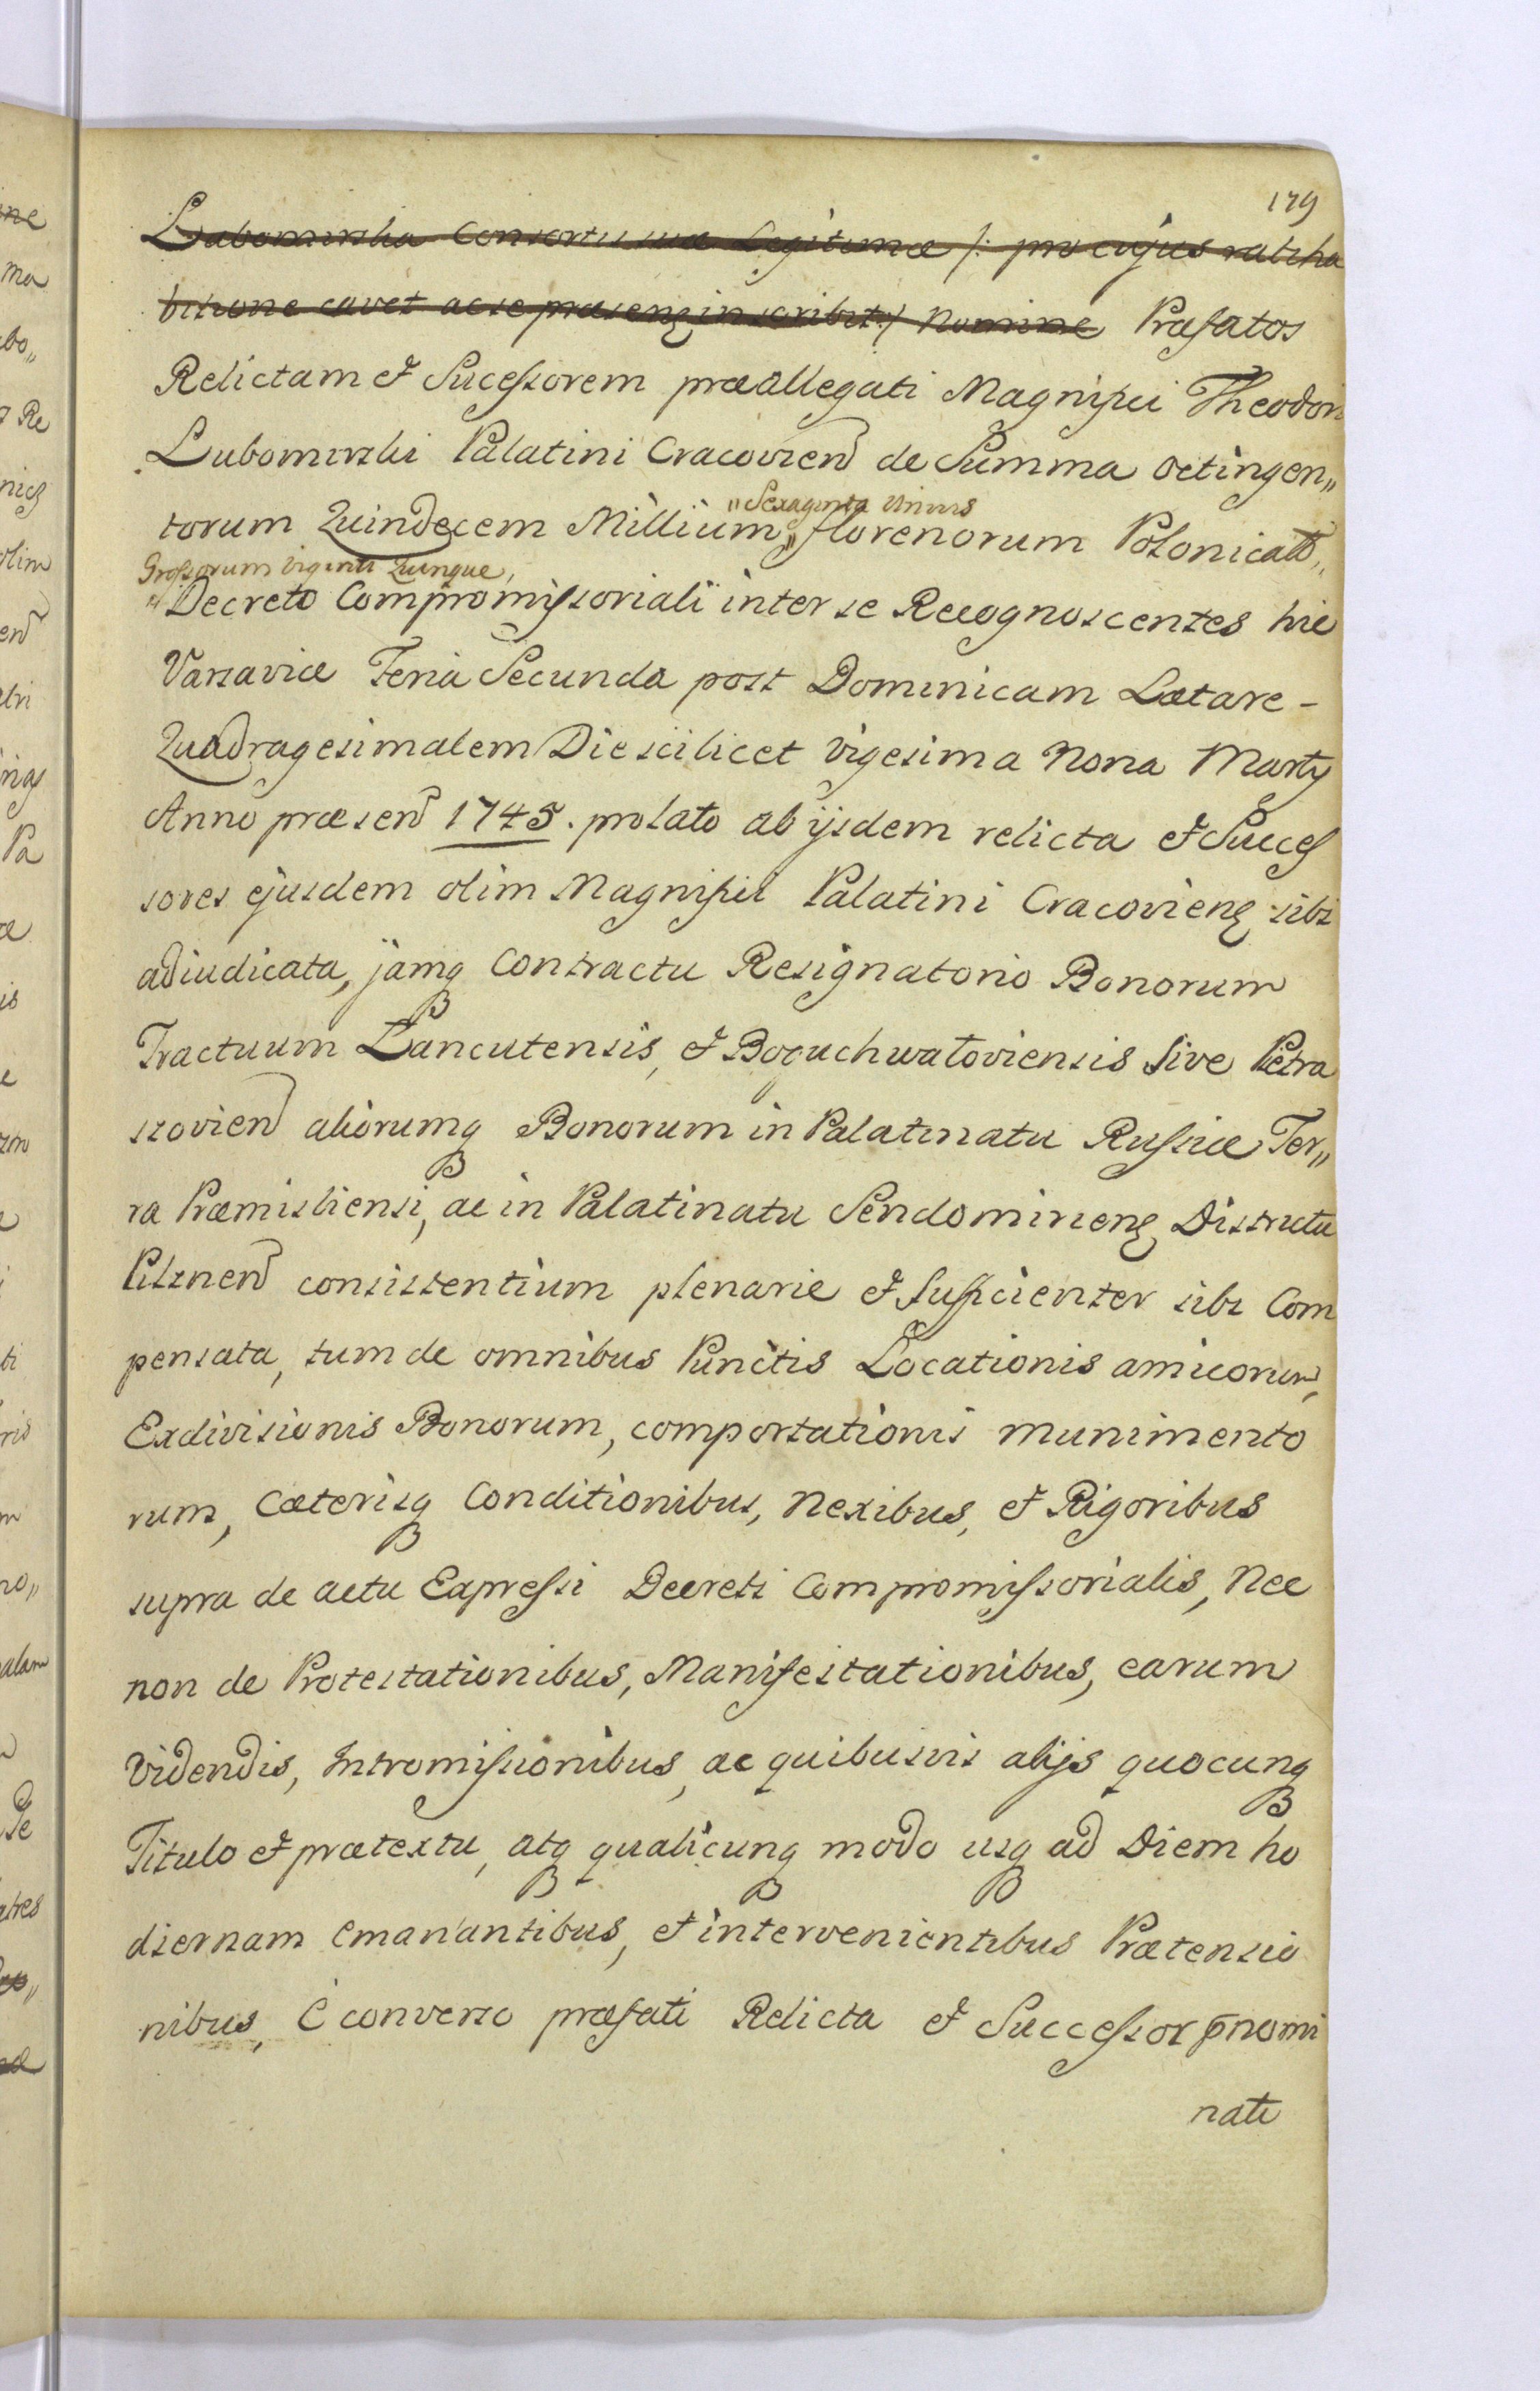 179
Lubomirska Consortis suæ Legitimæ /: pro cujus ratiha
bitione cavet ac se præsenz inscribit:/ Nomine Præfatos
Relictam et Sucessorem præallegati Magnifici Theodori
Lubomirski Palatini Cracovien de Summa octingen„
„Sexaginta Unius
torum Quindecem Millium„ florenorum Polonicall„
Grossorum viginti Quinque,
„Decreto Compromissoriali inter se Recognoscentes hic
Varsaviæ Feria Secunda post Dominicam Lætare -
Quadragesimalem Die scilicet Vigesima Nona Martij
Anno præsen 1745. prolato ab ijsdem relicta et Succes
sores ejusdem olim Magnifici Palatini Cracovienz sibi
adiudicata, jamq Contractu Resignatorio Bonorum
Tractuum Łancutensis, et Boguchwałoviensis sive Petra
szovien aliorumq Bonorum in Palatinatu Russiæ Ter„
ra Præmisliensi, ac in Palatinatu Sendomirienz Districtu
Pilznen consistentium plenarie et sufficienter sibi Com
pensata, tum de omnibus Punctis Locationis amicorum,
Exdivisionis Bonorum, comportationis munimento
rum, Cæterisq Conditionibus, Nexibus, et Rigoribus
supra de actu Expressi Decreti Compromissorialis, Nec
non de Protestationibus, Manifestationibus, earum
Videndis, Intromissionibus, ac quibusvis alijs quocunq
Titulo et prætextu, atq qualicunq modo usq ad Diem ho
diernam Emanantibus, et intervenientibus Prætensio
nibus, È converso præfati Relicta et Successor p̄nomi
nati